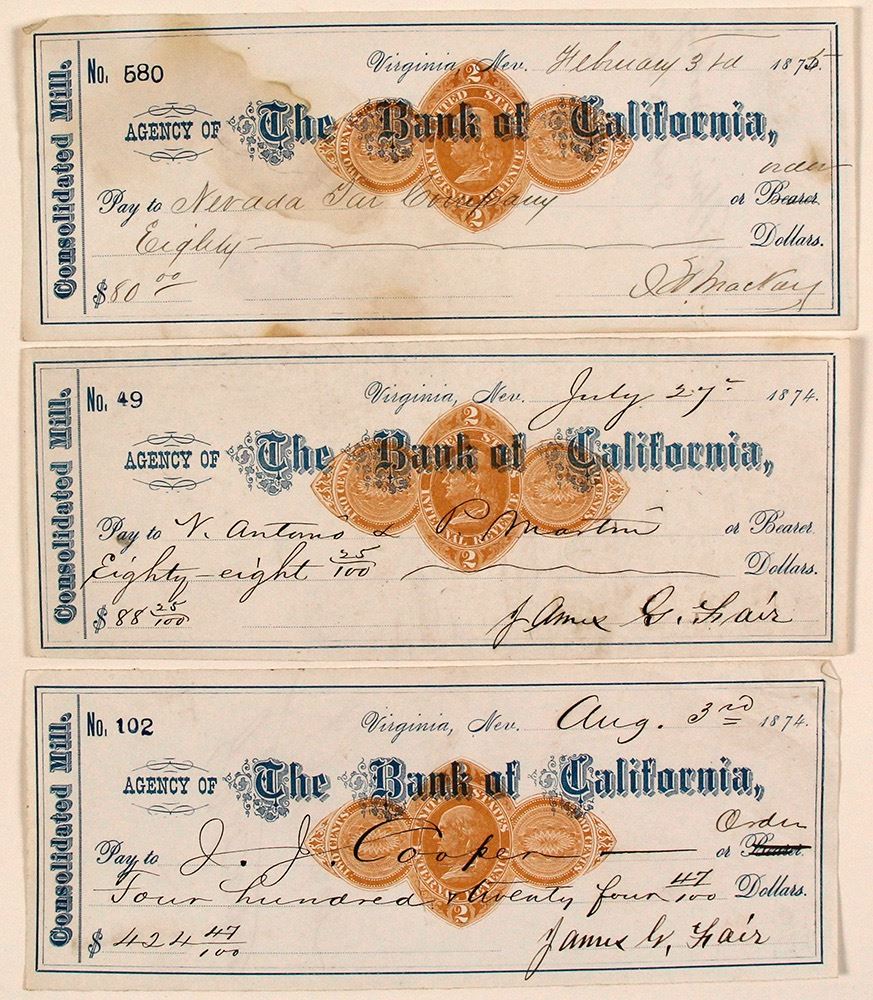 Consolidated Mill.
No. 580
Virginia, Nev. February 3rd 1875.
AGENCY OF The Bank of California,
2
UNITED STATES
TWO CENTS
INTERNAL REVENUE
2
order
Pay to Nevada Tar Company or Bearer.
Eighty Dollars.
$80 00
J W Mackay
Consolidated Mill.
No. 49
Virginia, Nev. July 27th 1874.
AGENCY OF The Bank of California,
2
TWO CENTS
INTERNAL REVENUE
2
Pay to N. Antonio & P. Martini or Bearer.
Eighty-eight 25/100 Dollars.
$ 88 25/100
James G. Fair
Consolidated Mill.
No. 102
Virginia, Nev. Aug. 3rd 1874.
AGENCY OF The Bank of California,
UNITED STATES
TWO CENTS
INTERNAL REVENUE
2
Order
Pay to J. J. Cooper or Bearer.
Four hundred & twenty four 47/100 Dollars.
$ 424 47/100
James G. Fair